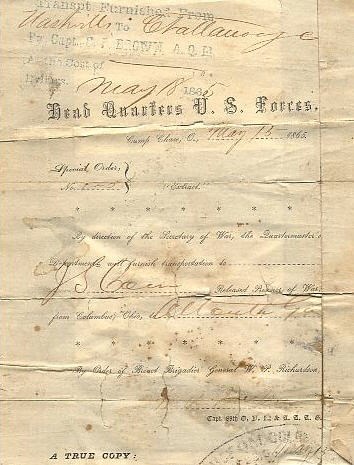 Transpt Furnished From
Nashville Chattanooga
To
By Capt. BROWN A.Q.M
At the Cost of
Dollars.
May 18 186
Head Quarters U. S. Forces,
Camp Chase, O., May 13 1865.
Special Order,
No. "Extract."
* * * * * *
By direction of the Secretary of War, the Quartermaster's
Department will furnish transportation to
J S Released Prisoner of War
from Columbus, Ohio,
* * * * * *
By Order of Brevet Brigadier General W. P. Richardson,
Capt. 88th O. V. I. & A. A. A. G.
A TRUE COPY: